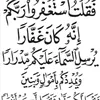 فَقُلْتُ اسْتَغْفِرُوا رَبَّكُمْ
إِنَّهُ كَانَ غَفَّارًا
يُرْسِلِ السَّمَاءَ عَلَيْكُمْ مِدْرَارًا
وَيُمْدِدْكُمْ بِأَمْوَالٍ وَبَنِينَ